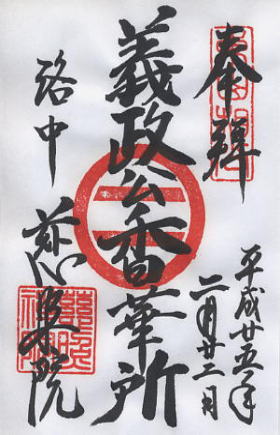 奉拝
平成廿五年
二月廿二日
義政公香華所
洛中
慈照院